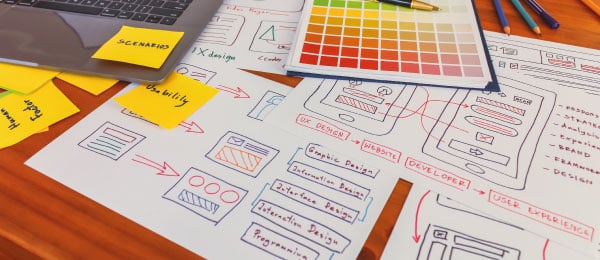 SCENARIOS
Usability
Human
Factor
UX design
Graphic Design
Information Design
Interface Design
Interaction Design
Programming
UX DESIGN
WEBSITE
DEVELOPER
USER EXPERIENCE
- BRAND
- DESIGN